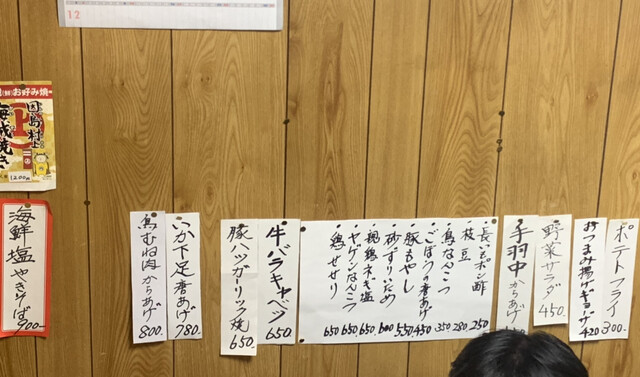 12
お好み焼
因島村上
海賊焼き
1200円
ポテトフライ 300.
おつまみ揚げギョーザ 420
野菜サラダ 450.
手羽中からあげ
・長いもポン酢 250
・枝豆 280
・鳥なんこつ 350
・ごぼうの唐あげ 450
・豚もやし 550
・砂ずりいため 600
・親鶏ネギ塩 650
・ヤゲンなんこつ 650
・鶏せせり 650
牛バラキャベツ 650.
豚ハツガーリック焼 650.
いか下足唐あげ 780.
鳥むね肉からあげ 800.
海鮮塩やきそば 900-